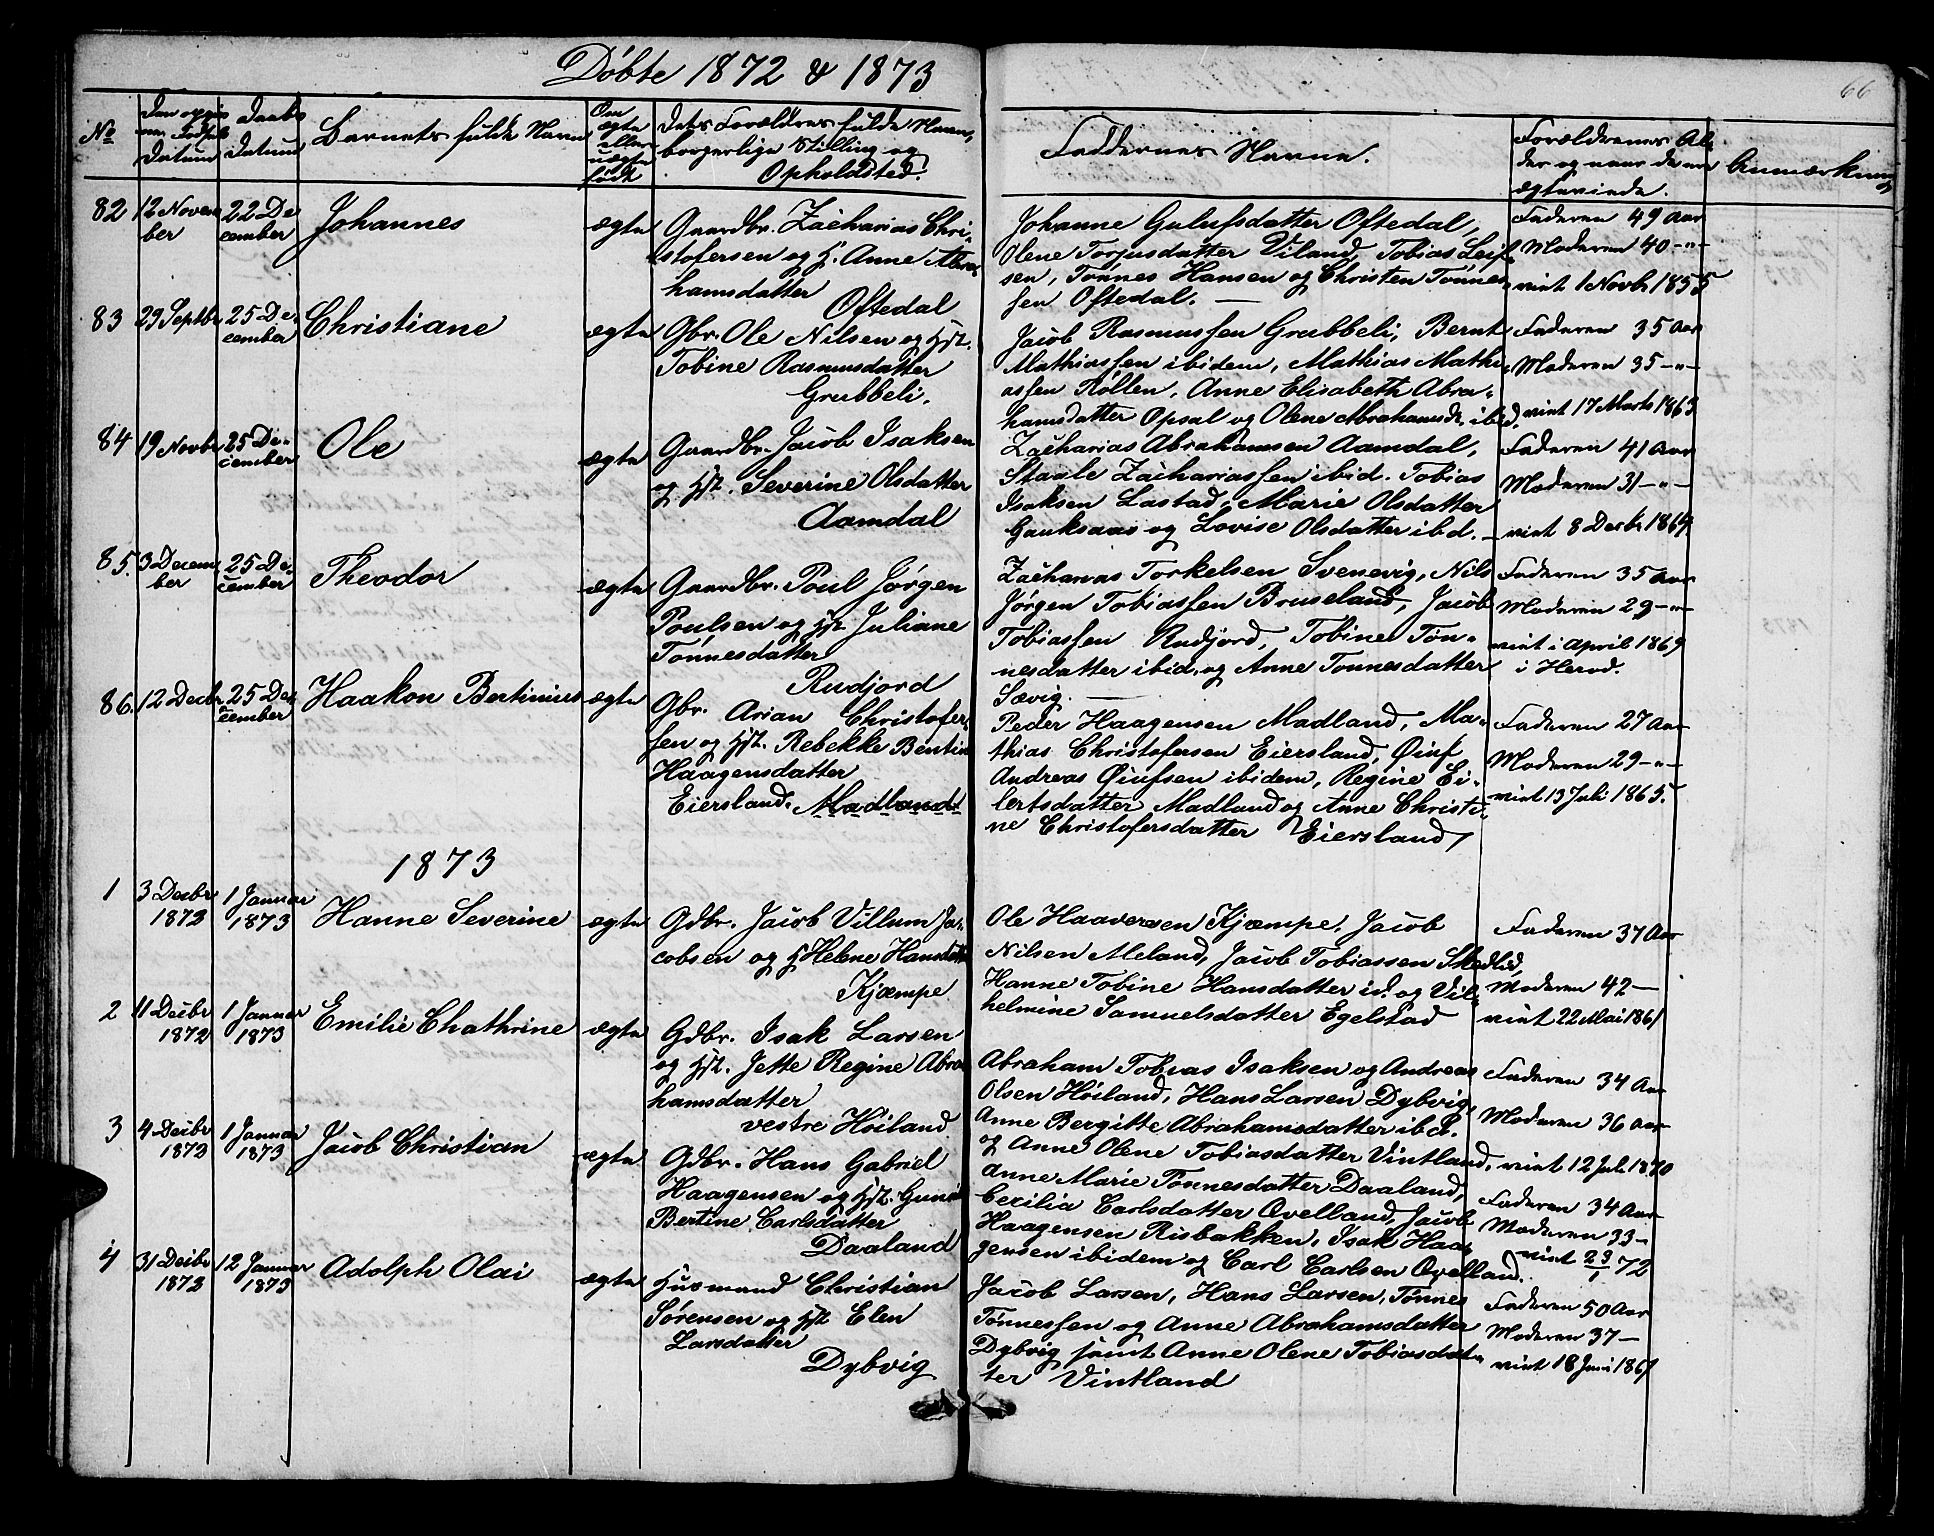 Döbte 1872 & 1873
66
No
Den opgiv
ne Fødsels
Datum
Daabs
Datum
Barnets fulde Navn
Om
ægte
eller
uægte
født
Dets Forældres fulde Navn,
borgerlige Stilling og
Opholdsted.
Faddernes Navne.
Forældrenes Al-
der og naar de ere
ægteviede.
Anmærkning
82
12 Novem
ber
22 De
cember
Johannes
ægte
Gaardbr. Zacharias Chri-
stofersen og H. Anne Abra
hamsdatter
Oftedal
Johanne Gulufsdatter Oftedal,
Olene Torjusdatter Viland, Tobias Leif-
sen, Tønnes Hansen og Christen Tønnes-
sen Oftedal. —
Faderen 49 Aar
Moderen 40 -"-
viet 1 Novbr 1855
83
29 Septbr
25 De-
cember
Christiane
ægte
Gbr. Ole Nilsen og Hst.
Tobine Rasmusdatter
Grubbeli.
Jacob Rasmussen Grubbeli, Bernt
Mathiassen ibidem, Mathias Mathi-
assen Rollen, Anne Elisabeth Abra-
hamsdatter Opsal og Olene Abrahamsdr. ibid.
Faderen 35 Aar
Moderen 35 -"-
viet 17 Marts 1863
84
19 Novbr
25 De-
cember
Ole
ægte
Gaardbr. Jacob Isaksen
og Hst. Severine Olsdatter
Aamdal
Zacharias Abrahamsen Aamdal,
Staale Zachariassen ibid. Tobias
Isaksen Lastad, Marie Olsdatter
Gauksaas og Lovise Olsdatter ibd. —
Faderen 41 Aar
Moderen 31 -"-
viet 8 Decbr 1864
85.
3 Decem
ber
25 De-
cember
Theodor
ægte
Gaardbr. Poul Jørgen
Poulsen og Hst. Juliane
Tønnesdatter
Rudjord
Zacharias Torkelsen Svenevig, Nils
Jørgen Tobiassen Bruseland, Jacob
Tobiassen Rudjord, Tobine Tøn-
nesdatter ibid. og Anne Tønnesdatter
Sævig. —
Faderen 35 Aar
Moderen 29 -"-
viet i April 1869
i Herod.
86.
12 Decbr
25 De-
cember
Haakon Bertinius
ægte
Gbr. Arian Christofer-
sen og Hst. Rebekke Bentine
Haagensdatter
Eiersland. Madland
Peder Haagensen Madland, Ma-
thias Christofersen Eiersland, Øiuf
Andreas Øiufsen ibidem, Regine Ei-
lertsdatter Madland og Anne Christi-
ne Christofersdatter Eiersland/
Faderen 27 Aar
Moderen 29 -"-
viet 13 Juli 1865.
1873
1
3 Decbr
1872
1 Januar
1873
Hanne Severine
ægte
Gdbr. Jacob Villum Ja-
cobsen og H. Helene Hansdatter
Kjæmpe
Ole Haaversen Kjæmpe, Jacob
Nilsen Meland, Jacob Tobiassen Skedlid,
Hanne Tobine Hansdatter id. og Vil-
helmine Samuelsdatter Egelstad
Faderen 37 Aar
Moderen 42 —
viet 22 Mai 1861
2
11 Decbr
1872
1 Januar
1873
Emilie Chathrine
ægte
Gdbr. Isak Larsen
og Hst. Jette Regine Abra
hamsdatter
vestre Høiland
Abraham Tobias Isaksen og Andreas
Olsen Høiland, Hans Larsen Dybvig,
Anne Bergitte Abrahamsdatter ibd.
og Anne Olene Tobiasdatter Vintland,
Faderen 34 Aar
Moderen 36 Aar
viet 12 Juli 1870
3
4 Decbr
1872
1 Januar
1873
Jacob Christian
ægte
Gdbr. Hans Gabriel
Haagensen og Hst. Gunild
Bertine Carlsdatter
Daaland
Anne Marie Tønnesdatter Daaland,
Cecilia Carlsdatter Qvelland, Jacob
Haagensen Risbakken, Isak Haa-
gensen ibidem og Carl Carlsen Qvelland.
Faderen 34 Aar
Moderen 33 —
viet 23/1 72
4
31 Decbr
1872
12 Januar
1873
Adolph Olai
ægte
Husmand Christian
Sørensen og Hst Elen
Larsdatter
Dybvig
Jacob Larsen, Hans Larsen, Tønnes
Tønnessen og Anne Abrahamsdatter
Dybvig samt Anne Olene Tobiasdat-
ter Vintland
Faderen 50 Aar
Moderen 37 —
viet 18 Juni 1861